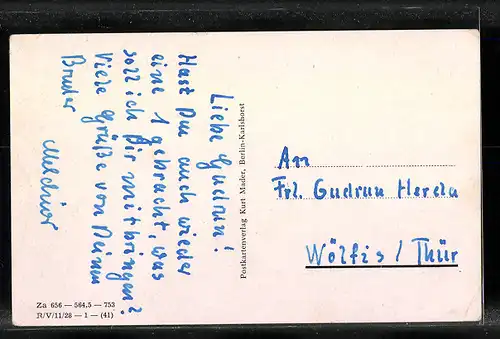 Liebe Gudrun!
Hast Du auch wieder
eine 1 gebracht, was
soll ich Dir mitbringen?
Viele Grüße von Deinem
Bruder
Melchior
Postkartenverlag Kurt Mader, Berlin-Karlshorst
An
Frl. Gudrun Herda
Wölfis / Thür
Za 656 — 564,5 — 753
R/V/11/28 — 1 — (41)